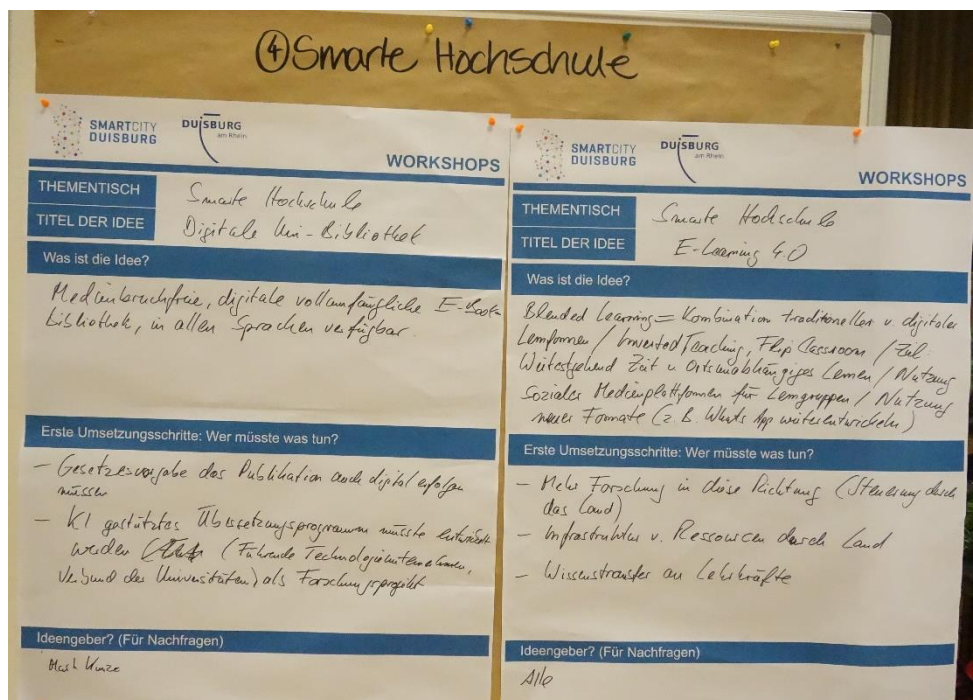 ④ Smarte Hochschule
SMARTCITY
DUISBURG
DUISBURG
am Rhein
WORKSHOPS
THEMENTISCH
Smarte Hochschule
TITEL DER IDEE
Digitale Uni-Bibliothek
Was ist die Idee?
Medienbruchfreie, digitale vollumfängliche E-Book-
bibliothek, in allen Sprachen verfügbar.
Erste Umsetzungsschritte: Wer müsste was tun?
- Gesetzesvorgabe das Publikation auch digital erfolgen
müssen
- KI gestütztes Übersetzungsprogramm müsste entwickelt
werden (Führende Technologieunternehmen,
Verbund der Universitäten) als Forschungsprojekt
Ideengeber? (Für Nachfragen)
SMARTCITY
DUISBURG
DUISBURG
am Rhein
WORKSHOPS
THEMENTISCH
Smarte Hochschule
TITEL DER IDEE
E-Learning 4.0
Was ist die Idee?
Blended Learning = Kombination traditioneller u. digitaler
Lernformen / Inverted Teaching, Flip Classroom / Ziel:
Weitestgehend Zeit u Ortsunabhängiges Lernen / Nutzung
Sozialer Medienplattformen für Lerngruppen / Nutzung
neuer Formate (z.B. Whats App weiterentwickeln)
Erste Umsetzungsschritte: Wer müsste was tun?
- Mehr Forschung in diese Richtung (Steuerung durch
das Land)
- Infrastruktur u. Ressourcen durch Land
- Wissenstransfer an Lehrkräfte
Ideengeber? (Für Nachfragen)
Alle